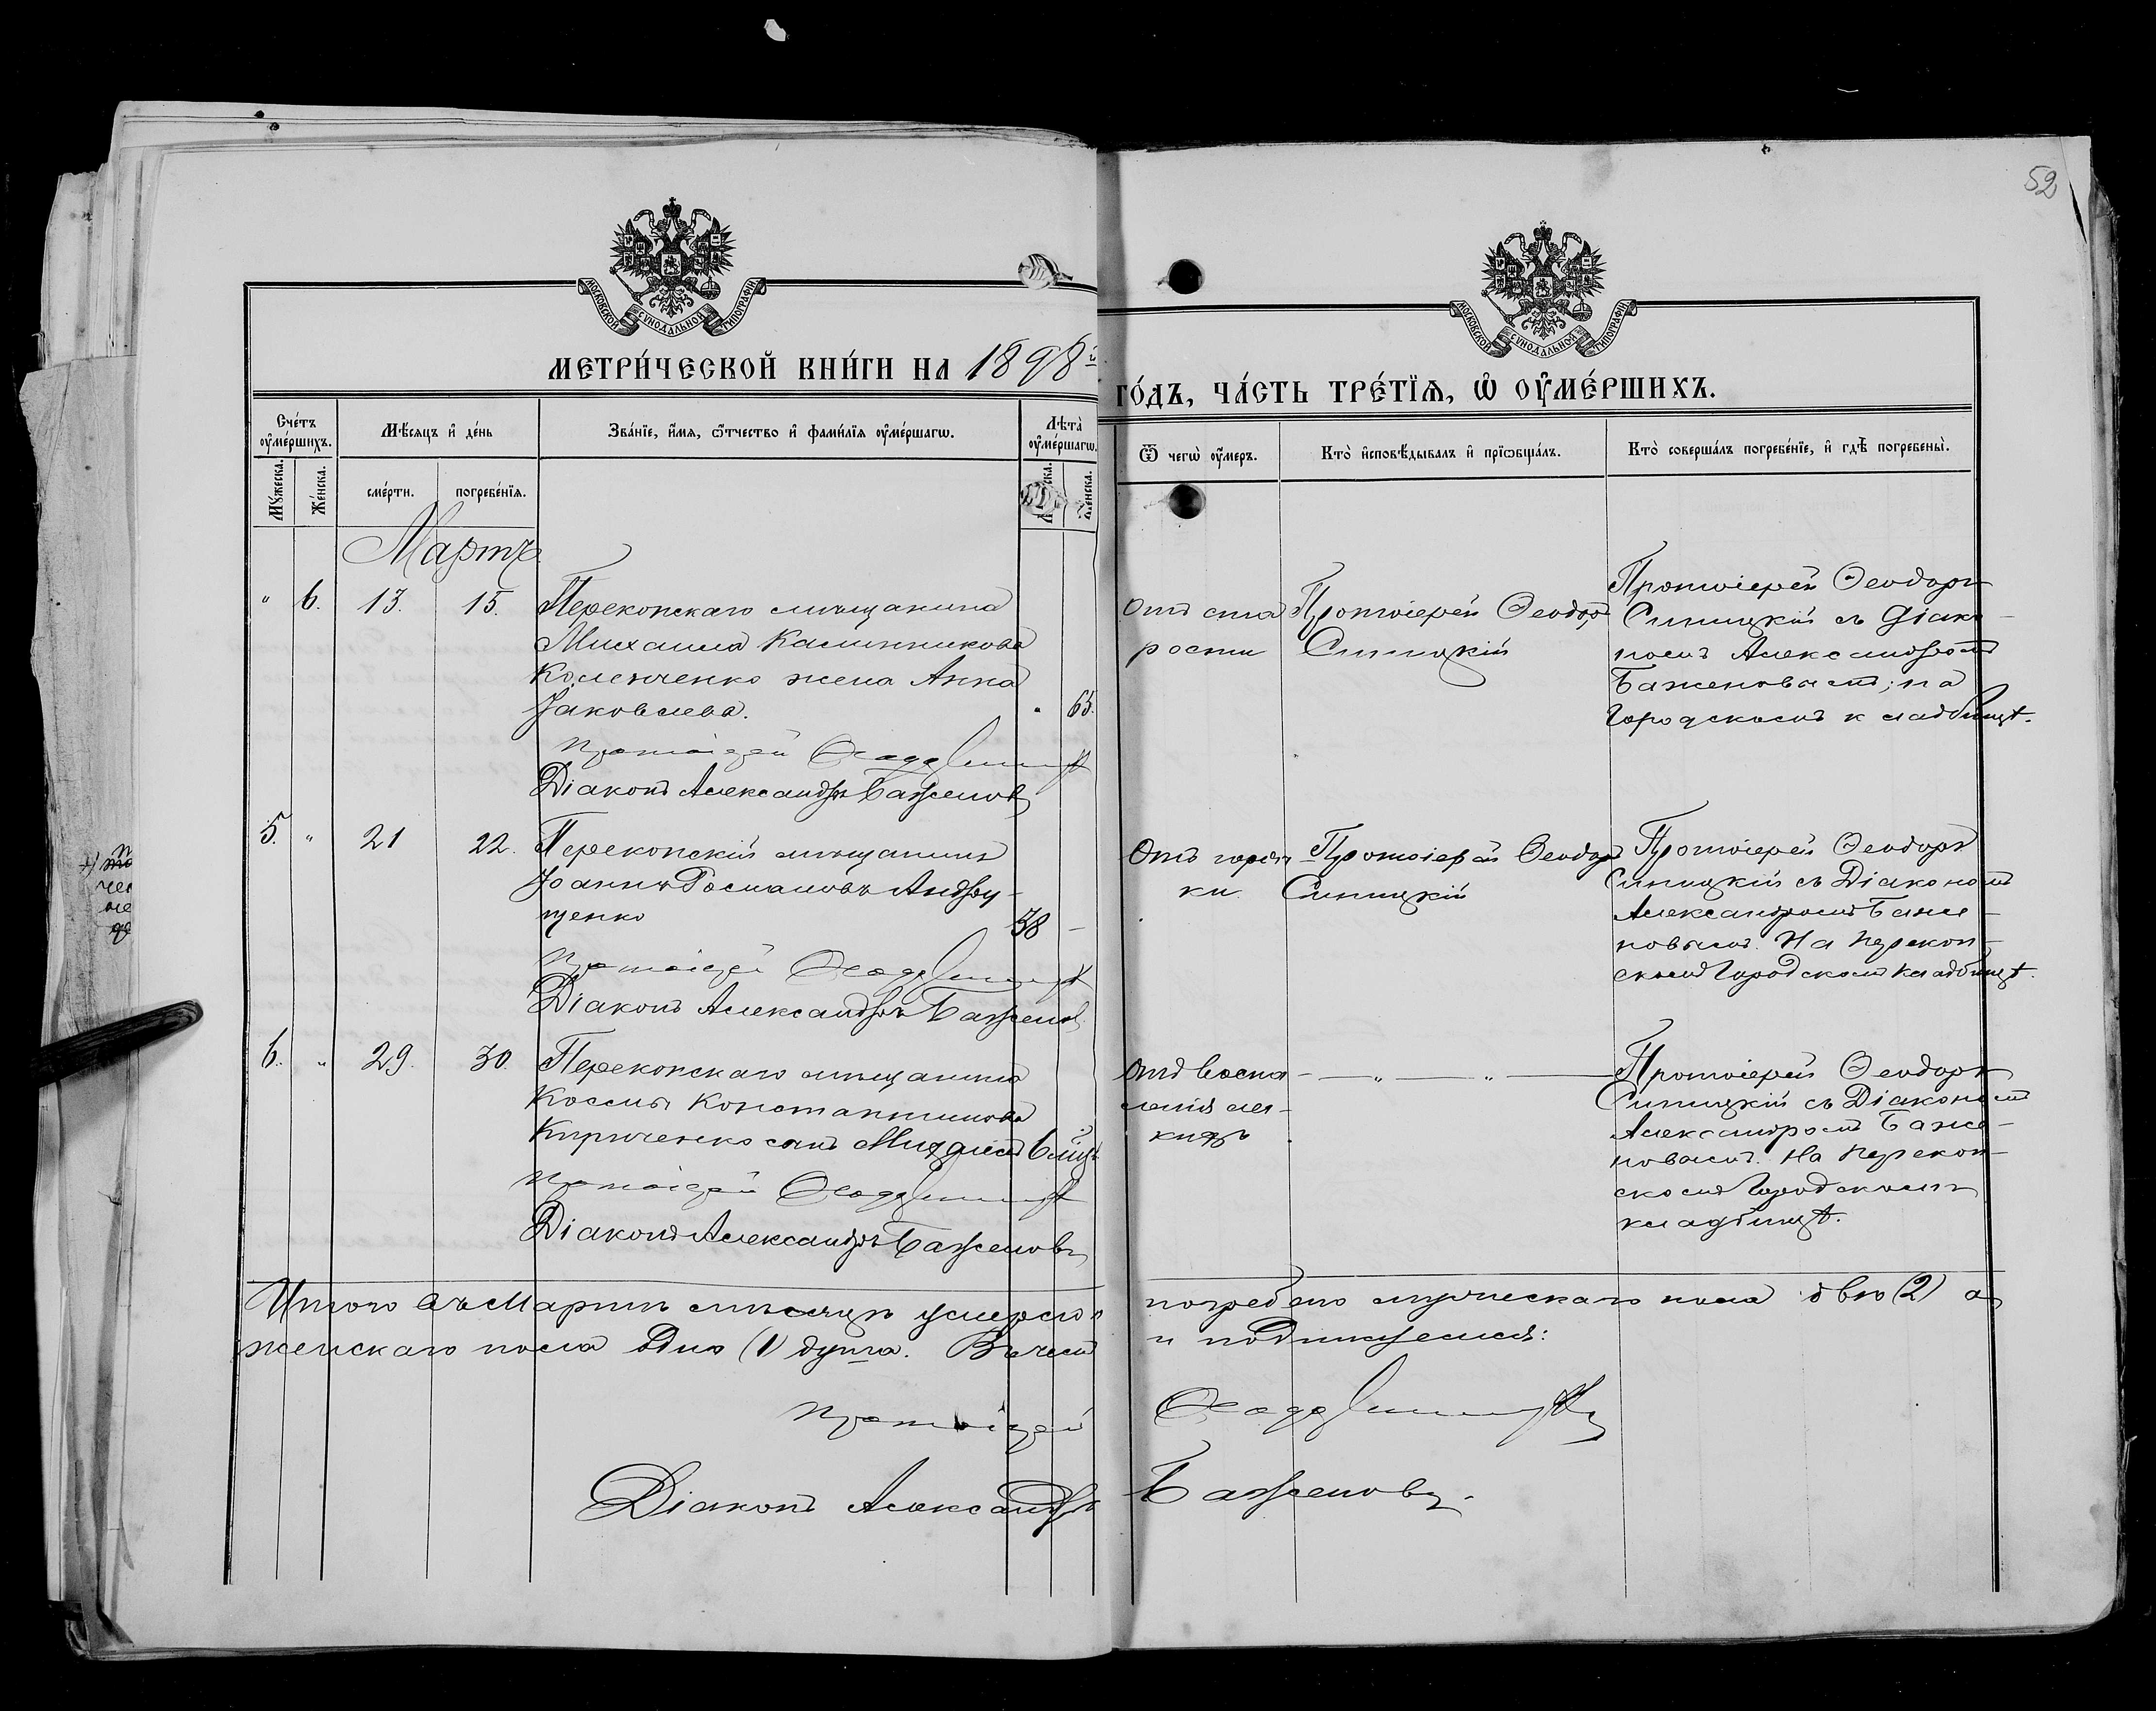 52
МОСКОВСКОЙ СУНОДАЛЬНОЙ ТИПОГРАФІИ
МОСКОВСКОЙ СУНОДАЛЬНОЙ ТИПОГРАФІИ
МЕТРИ́ЧЕСКОЙ КНИ́ГИ НА 1898й
ГО́ДЪ, ЧА́СТЬ ТРЕ́ТЇѦ, Ѡ҆ ОУ҆МЕ́РШИХЪ.
Сче́тъ оу҆ме́ршихъ.
Мꙋ́жеска.
Же́нска.
Мѣ́сяцъ и҆ де́нь
сме́рти.
погребе́нїѧ.
Зва́нїе, и҆́мѧ, ѻ҆́тчество и҆ фами́лїѧ оу҆ме́ршагѡ.
Лѣ́та оу҆ме́ршагѡ.
Же́нска.
Ѿ чегѡ̀ оу҆́меръ.
Кто̀ и҆сповѣ́дывалъ и҆ прїѡбща́лъ.
Кто̀ соверша́лъ погребе́нїе, и҆ гдѣ̀ погребены̀.
Мартъ
" 6. 13. 15. Перекопскаго мѣщанина
Михаила Калинникова
Коленченко жена Анна
Іаковлева. " 65.
Протоіерей Ѳеодоръ Синицкій
Діаконъ Александръ Баженовъ
Отъ ста
рости
Протоіерей Ѳеодоръ
Синицкій
Протоіерей Ѳеодоръ
Синицкій съ Діако-
номъ Александромъ
Баженовымъ; на
Городскомъ кладбищѣ.
5. " 21 22. Перекопскій мѣщанинъ
Іоаннъ Романовъ Андрю-
щенко 38 -
Протоіерей Ѳеодоръ Синицкій
Діаконъ Александръ Баженовъ
Отъ горяч
ки.
Протоіерей Ѳеодоръ
Синицкій
Протоіерей Ѳеодоръ
Синицкій съ Діакономъ
Александромъ Баже-
новымъ. На Перекоп-
скомъ Городскомъ кладбищѣ.
6. " 29. 30. Перекопскаго мѣщанина
Космы Константинова
Кириченко сынъ Михаилъ 6 мѣс.
Протоіерей Ѳеодоръ Синицкій
Діаконъ Александръ Баженовъ
Отъ воспа-
ленія лег-
кихъ
— " — " —
Протоіерей Ѳеодоръ
Синицкій съ Діакономъ
Александромъ Баже-
новымъ. На Перекоп-
скомъ Городскомъ
кладбищѣ.
Итого въ Мартѣ мѣсяцѣ умерло и погребено мужескаго пола двѣ (2) а
женскаго пола одна (1) душа. Въ чемъ и подпишемся:
Протоіерей Ѳеодоръ Синицкій
Діаконъ Александръ Баженовъ.